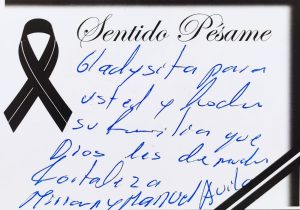 Sentido Pésame
Gladysita para
usted y toda
su familia que
Dios les de mucha
fortaleza
Miriam y Manuel Avila